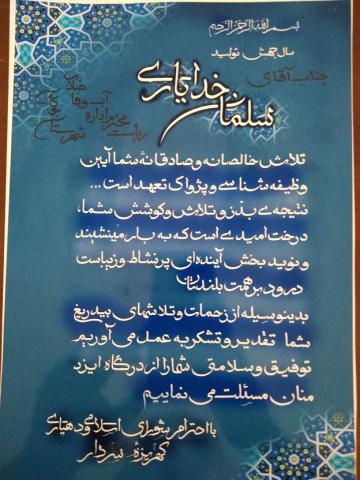 بسم الله الرحمن الرحیم
سال جهش تولید
جناب آقای
سلمان خدایاری
ریاست محترم اداره
آب و فاضلاب
شهرستان
تلاش خالصانه و صادقانه شما آیین
وظیفه شناسی و پژواک تعهد است...
نتیجه‌ی بذر و تلاش و کوشش شما،
درخت امیدی است که به بار مینشیند
و نوید بخش آینده‌ای پر نشاط و زیباست
درود بر همت بلندتان
بدینوسیله از زحمات و تلاشهای بیدریغ
شما تقدیر و تشکر به عمل می آوریم
توفیق و سلامتی شما را از درگاه ایزد
منان مسئلت می نماییم
با احترام شورای اسلامی و دهیاری
کهریزه سردار